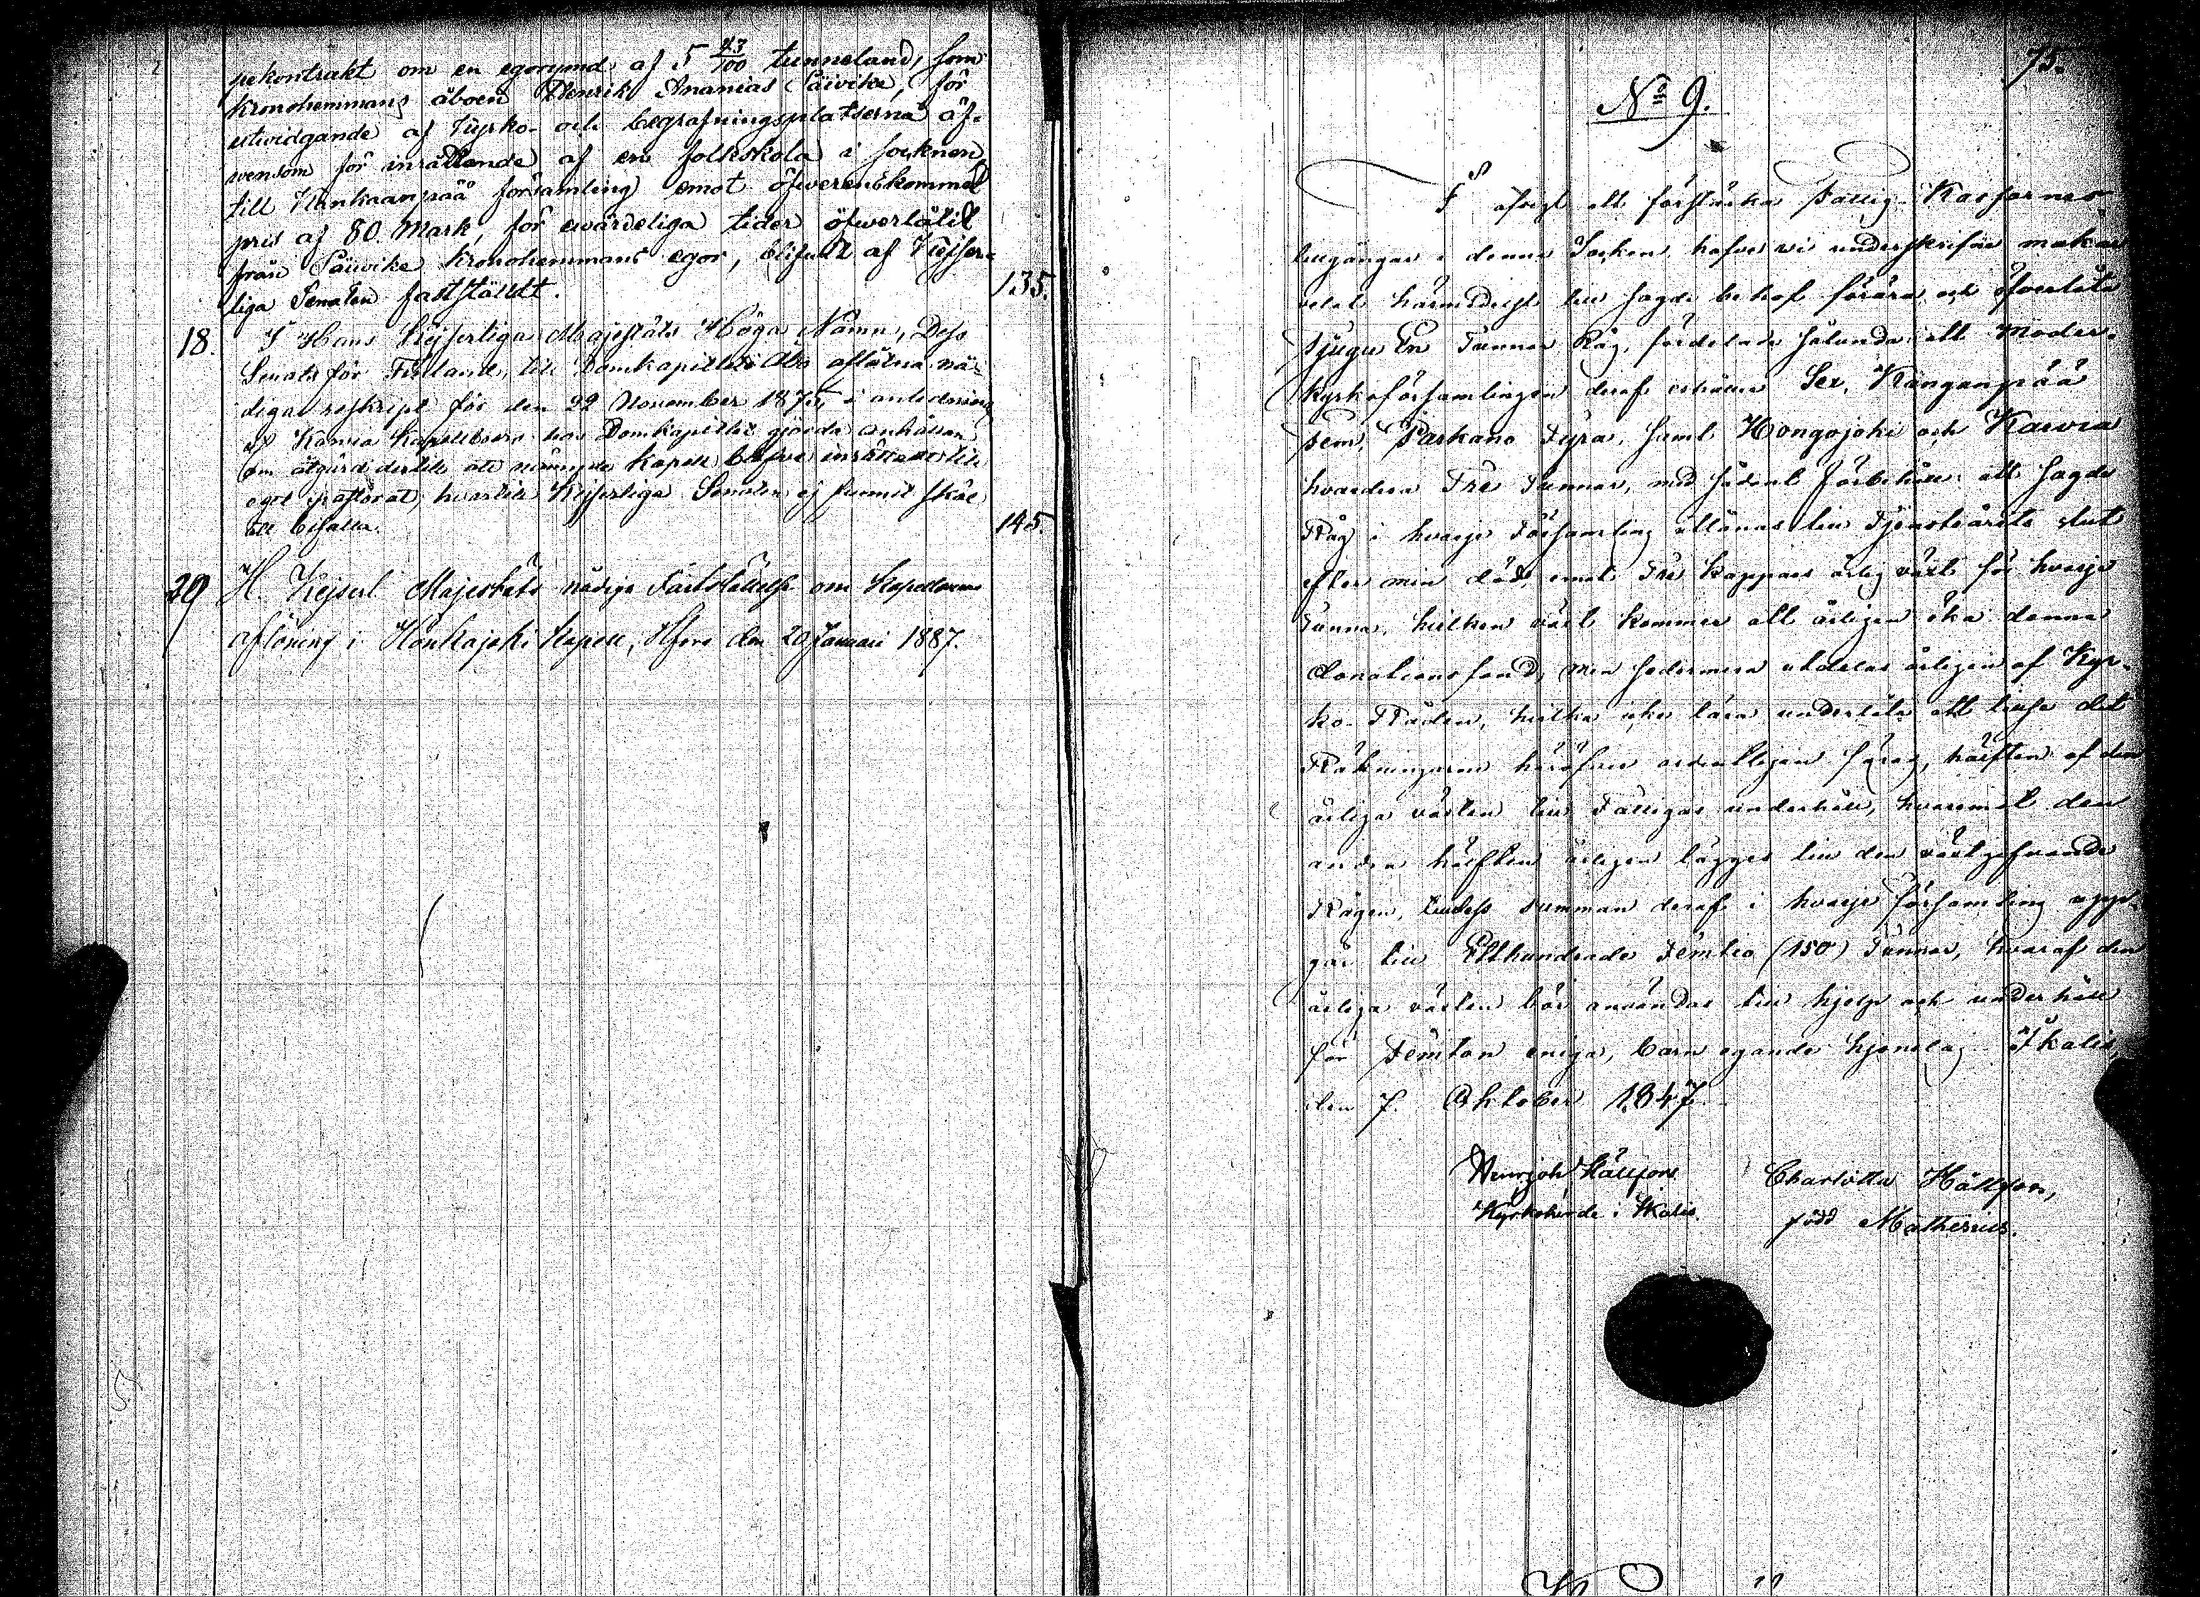 pekontrakt om en egorymd af 5 43/100 tunneland, som
kronohemmans åboen Henrik Ananias Säivike, för
utvidgande af Kyrko- och begrafningsplatserna äf-
wensom för inrättande af en folkskola i socknen
till Kankaanpää församling emot öfverenskommet
pris af 80 Mark, för ewärdeliga tider öfverlåtit
från Säiwike Kronohemmans egor, blifvit af Kejser-
liga Senaten fastställdt.
135.
18. I Hans Kejserliga Majestäts Höga Namn, Dess
Senats för Finland, till Domkapitlet i Åbo aflåtna nå-
diga reskript för den 22 November 187 i anledning
af Karvia Kapellboers hos Domkapitlet gjorda anhållan
om åtgärd dertill att nämnde Kapell blefve inrättadt till
eget pastorat, hvartill Kejserliga Senaten ej funnit skäl
att bifalla.
145.
29 H. Kejserl. Majestäts nådiga Fastställelse om Kapellanens
aflöning i Honkajoki Kapell, Hfors den 20 Januari 1887.
75.
No 9.
I afsigt att förstärka Fattig-Kassornes
tillgångar i denna Socken hafva vi underskrifne makar
velat härmedelst till sagde behof förära och öfverlåta
Tjugu En Tunnor Råg, fördelade sålunda att Moder-
kyrkoförsamlingen deraf erhåller Sex, Kanganpää
Fem, Parkano Fyra, samt Hongojoki och Karvia
hvardera Tre Tunnor, med sådant förbehåll att sagde
Råg i hvarje Församling utlånas till Tjenstårets slut
efter min död emot Tre Kappars årlig växt för hvarje
Tunna, hvilken växt kommer att årligen öka denna
donationsfond, men sedermera utdelas årligen af Kyr-
ko-Råden, hvilka icke lära underlåta att tillse det
Räkningarne häröfver ordentligen föras, hälften af den
årliga växten till Fattigas underhåll, hvaremot den
andra hälften årligen lägges till den växtgifvande
Rågen, tilldess summan deraf i hvarje församling upp-
går till Etthundrade Femtio (150) Tunnor, hvaraf den
årliga växten bör användas till hjelp och underhåll
för Femton eniga, barn egande hjonelag. Ikalis
den 7. Oktober 1847.
Hällfors Charlotta Hällfors,
Kyrkoherde i Ikalis. född Mathesius.